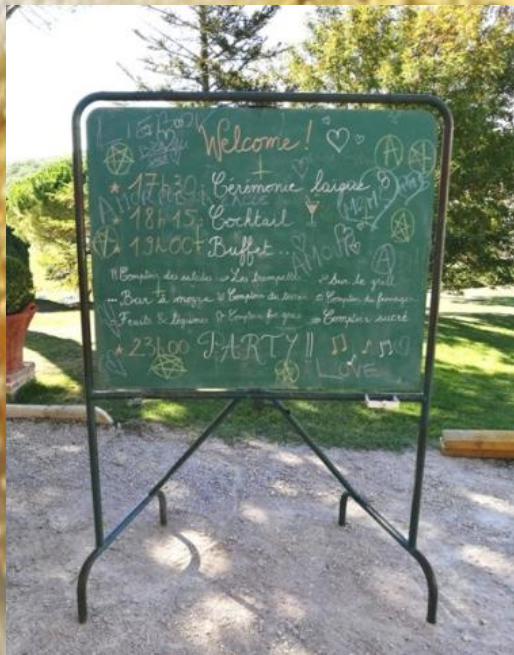 Welcome !
17h30 : Cérémonie laïque
18h15 : Cocktail
19h00 : Buffet...
Comptoir des salades Les trempettes Sur le grill
Bar à mozza Comptoir du terroir Comptoir du fromager
Fruits & légumes Comptoir foie gras Comptoir sucré
23h00 PARTY !!
AMOUR
LOVE